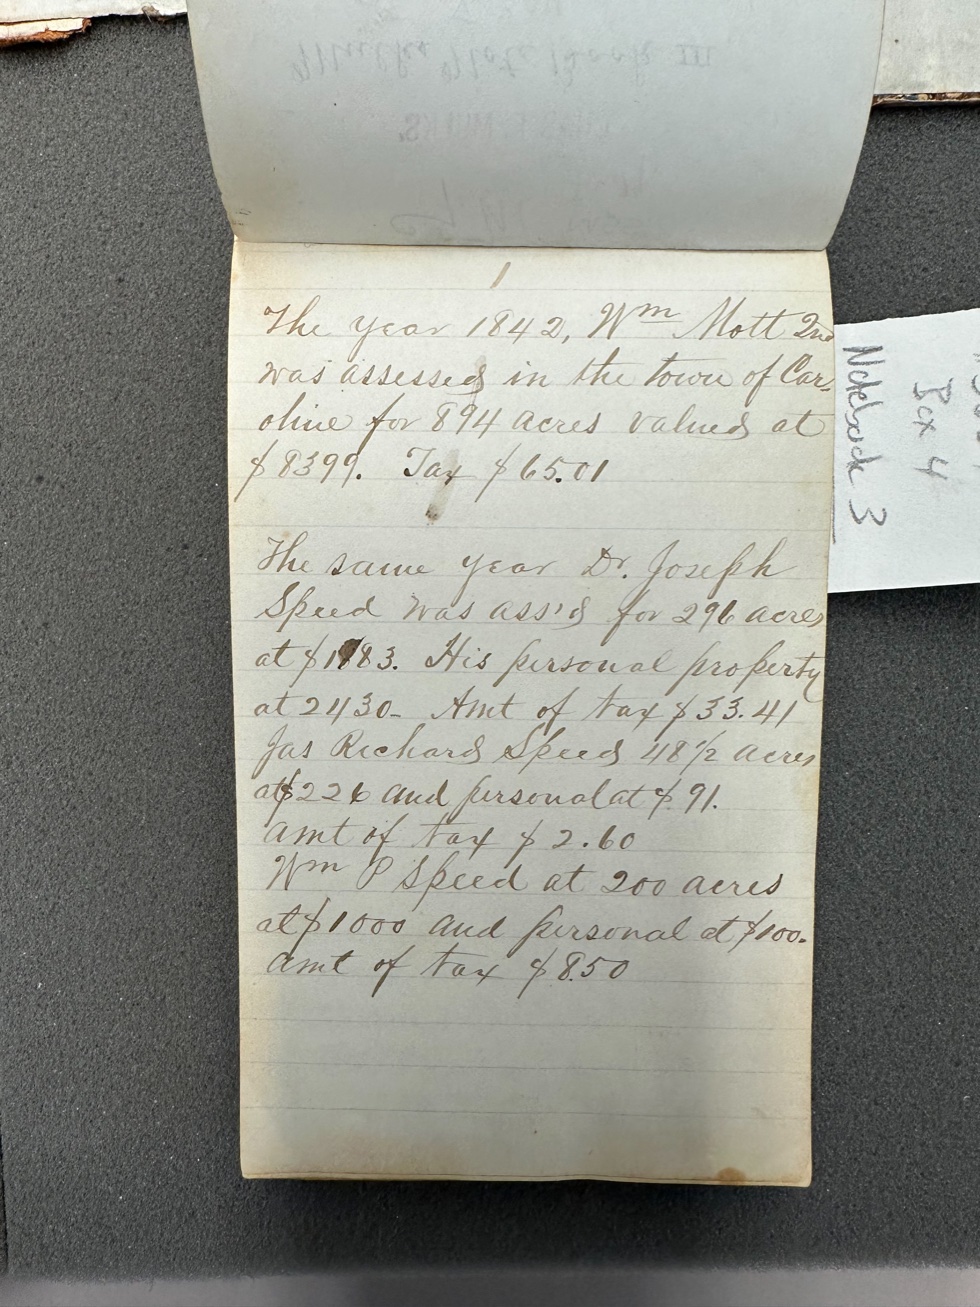 1
The year 1842, Wm Mott 2nd
was assessed in the town of Car-
oline for 894 acres valued at
$8399. Tax $65.01
The same year Dr. Joseph
Speed was ass'd for 296 acres
at $1983. His personal property
at 2430- Amt of tax $33.41
Jas Richard Speed 48 1/2 acres
at $226 and personal at $91.
amt of tax $2.60
Wm P Speed at 200 acres
at $1000 and personal at $100.
amt of tax $8.50
Box 4
Notebook 3